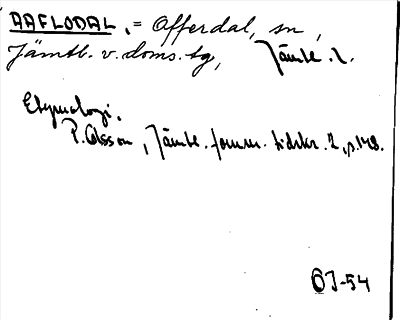 AAFLODAL. = Offerdal, sn,
Jämtl. v. doms. tg, Jämtl. l.
Etymologi.
P. Olsson, Jämtl. fornm. tidskr. 2, p. 148.
OJ-54